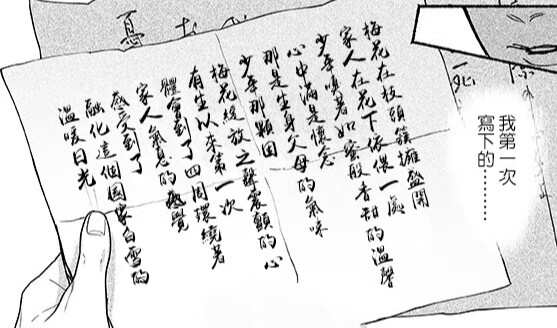 我第一次
寫下的………
梅花在枝頭簇擁盛開
家人在花下依偎一處
少年嗅著如蜜般香甜的溫馨
心中滿是懷念
那是生身父母的氣味
少年那顆因
梅花綻放之聲震顫的心
有生以來第一次
體會到了四周環繞著
家人氣息的感覺
感受到了
融化這個國家白雪的
溫暖日光
憂